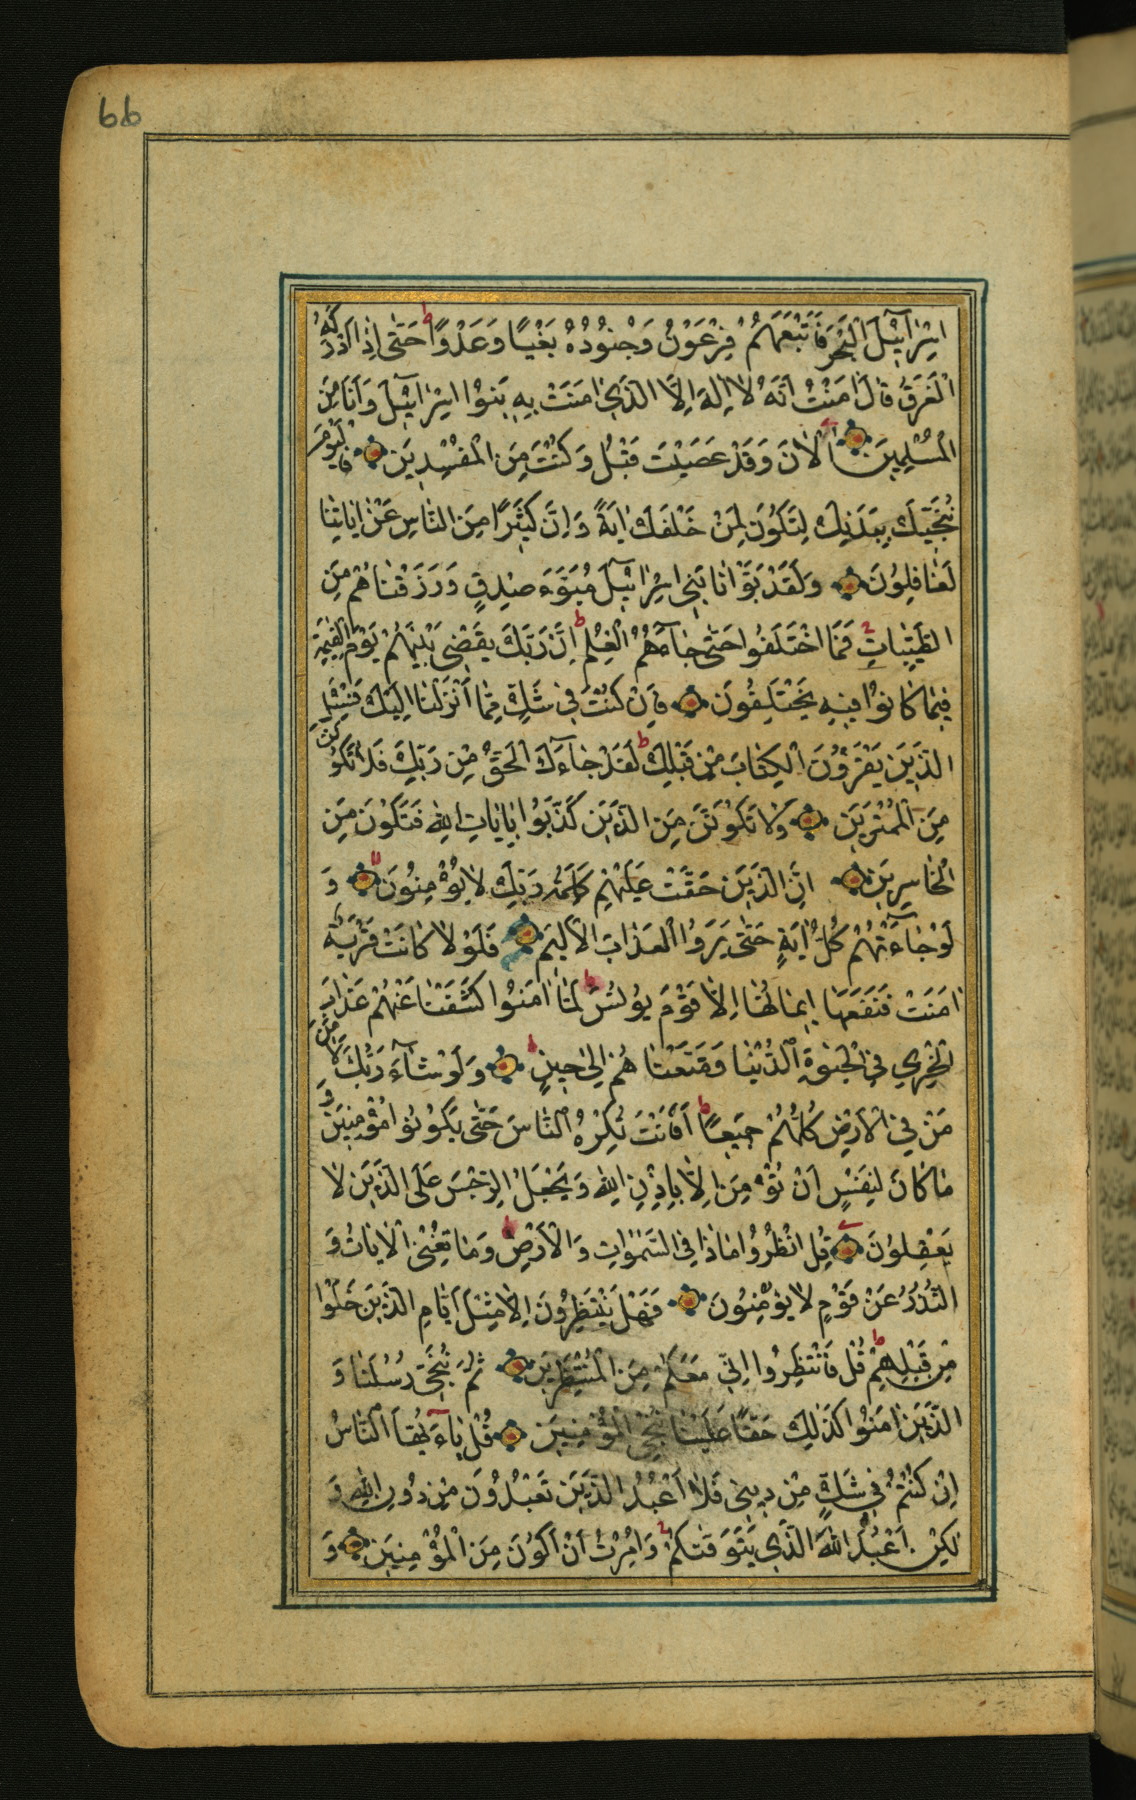 66
اِسْرَآئِيلَ الْبَحْرَ فَاَتْبَعَهُمْ فِرْعَوْنُ وَجُنُودُهُ بَغْيًا وَعَدْوًا ط حَتّٰى اِذَا اَدْرَكَهُ
الْغَرَقُ قَالَ اٰمَنْتُ اَنَّهُ لَا اِلٰهَ اِلَّا الَّذِي اٰمَنَتْ بِهِ بَنُوا اِسْرَآئِيلَ وَاَنَا مِنَ
الْمُسْلِمِينَ اٰلْاٰنَ وَقَدْ عَصَيْتَ قَبْلُ وَكُنْتَ مِنَ الْمُفْسِدِينَ فَالْيَوْمَ
نُنَجِّيكَ بِبَدَنِكَ لِتَكُونَ لِمَنْ خَلْفَكَ اٰيَةً وَاِنَّ كَثِيرًا مِنَ النَّاسِ عَنْ اٰيَاتِنَا
لَغَافِلُونَ وَلَقَدْ بَوَّأْنَا بَنِي اِسْرَآئِيلَ مُبَوَّءَ صِدْقٍ وَرَزَقْنَاهُمْ مِنَ
الطَّيِّبَاتِ فَمَا اخْتَلَفُوا حَتّٰى جَآءَهُمُ الْعِلْمُ ط اِنَّ رَبَّكَ يَقْضِي بَيْنَهُمْ يَوْمَ الْقِيٰمَةِ
فِيمَا كَانُوا فِيهِ يَخْتَلِفُونَ فَاِنْ كُنْتَ فِي شَكٍّ مِمَّا اَنْزَلْنَا اِلَيْكَ فَسْئَلِ
الَّذِينَ يَقْرَؤُنَ الْكِتَابَ مِنْ قَبْلِكَ ط لَقَدْ جَآءَكَ الْحَقُّ مِنْ رَبِّكَ فَلَا تَكُونَنَّ
مِنَ الْمُمْتَرِينَ وَلَا تَكُونَنَّ مِنَ الَّذِينَ كَذَّبُوا بِاٰيَاتِ اللّٰهِ فَتَكُونَ مِنَ
الْخَاسِرِينَ اِنَّ الَّذِينَ حَقَّتْ عَلَيْهِمْ كَلِمَتُ رَبِّكَ لَا يُؤْمِنُونَ وَ
لَوْ جَآءَتْهُمْ كُلُّ اٰيَةٍ حَتّٰى يَرَوُا الْعَذَابَ الْاَلِيمَ فَلَوْلَا كَانَتْ قَرْيَةٌ
اٰمَنَتْ فَنَفَعَهَا اِيمَانُهَا اِلَّا قَوْمَ يُونُسَ ط لَمَّا اٰمَنُوا كَشَفْنَا عَنْهُمْ عَذَابَ
الْخِزْيِ فِي الْحَيٰوةِ الدُّنْيَا وَمَتَّعْنَاهُمْ اِلٰى حِينٍ وَلَوْ شَآءَ رَبُّكَ لَاٰمَنَ
مَنْ فِي الْاَرْضِ كُلُّهُمْ جَمِيعًا ط اَفَاَنْتَ تُكْرِهُ النَّاسَ حَتّٰى يَكُونُوا مُؤْمِنِينَ وَ
مَا كَانَ لِنَفْسٍ اَنْ تُؤْمِنَ اِلَّا بِاِذْنِ اللّٰهِ وَيَجْعَلُ الرِّجْسَ عَلَى الَّذِينَ لَا
يَعْقِلُونَ قُلِ انْظُرُوا مَاذَا فِي السَّمٰوَاتِ وَالْاَرْضِ ط وَمَا تُغْنِي الْاٰيَاتُ وَ
النُّذُرُ عَنْ قَوْمٍ لَا يُؤْمِنُونَ فَهَلْ يَنْتَظِرُونَ اِلَّا مِثْلَ اَيَّامِ الَّذِينَ خَلَوْا
مِنْ قَبْلِهِمْ ط قُلْ فَانْتَظِرُوا اِنِّي مَعَكُمْ مِنَ الْمُنْتَظِرِينَ ثُمَّ نُنَجِّي رُسُلَنَا وَ
الَّذِينَ اٰمَنُوا كَذٰلِكَ حَقًّا عَلَيْنَا نُنْجِ الْمُؤْمِنِينَ قُلْ يَآ اَيُّهَا النَّاسُ
اِنْ كُنْتُمْ فِي شَكٍّ مِنْ دِينِي فَلَا اَعْبُدُ الَّذِينَ تَعْبُدُونَ مِنْ دُونِ اللّٰهِ وَ
لٰكِنْ اَعْبُدُ اللّٰهَ الَّذِي يَتَوَفّٰيكُمْ وَاُمِرْتُ اَنْ اَكُونَ مِنَ الْمُؤْمِنِينَ وَ